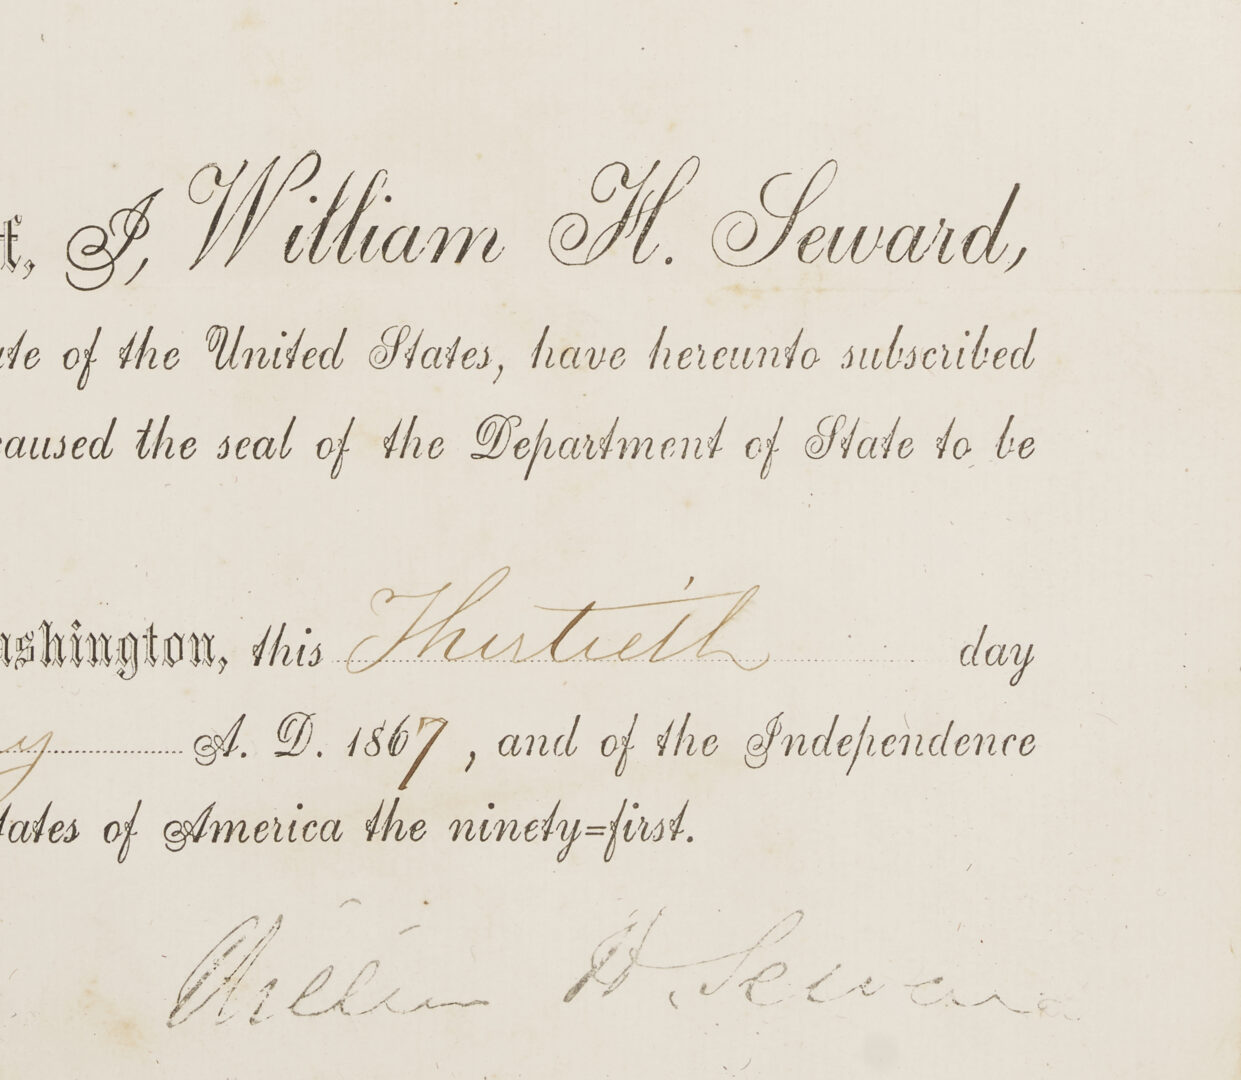 I, William H. Seward,
of the United States, have hereunto subscribed
caused the seal of the Department of State to be
this Thirtieth day
y A. D. 1867, and of the Independence
of America the ninety=first.
William H. Seward